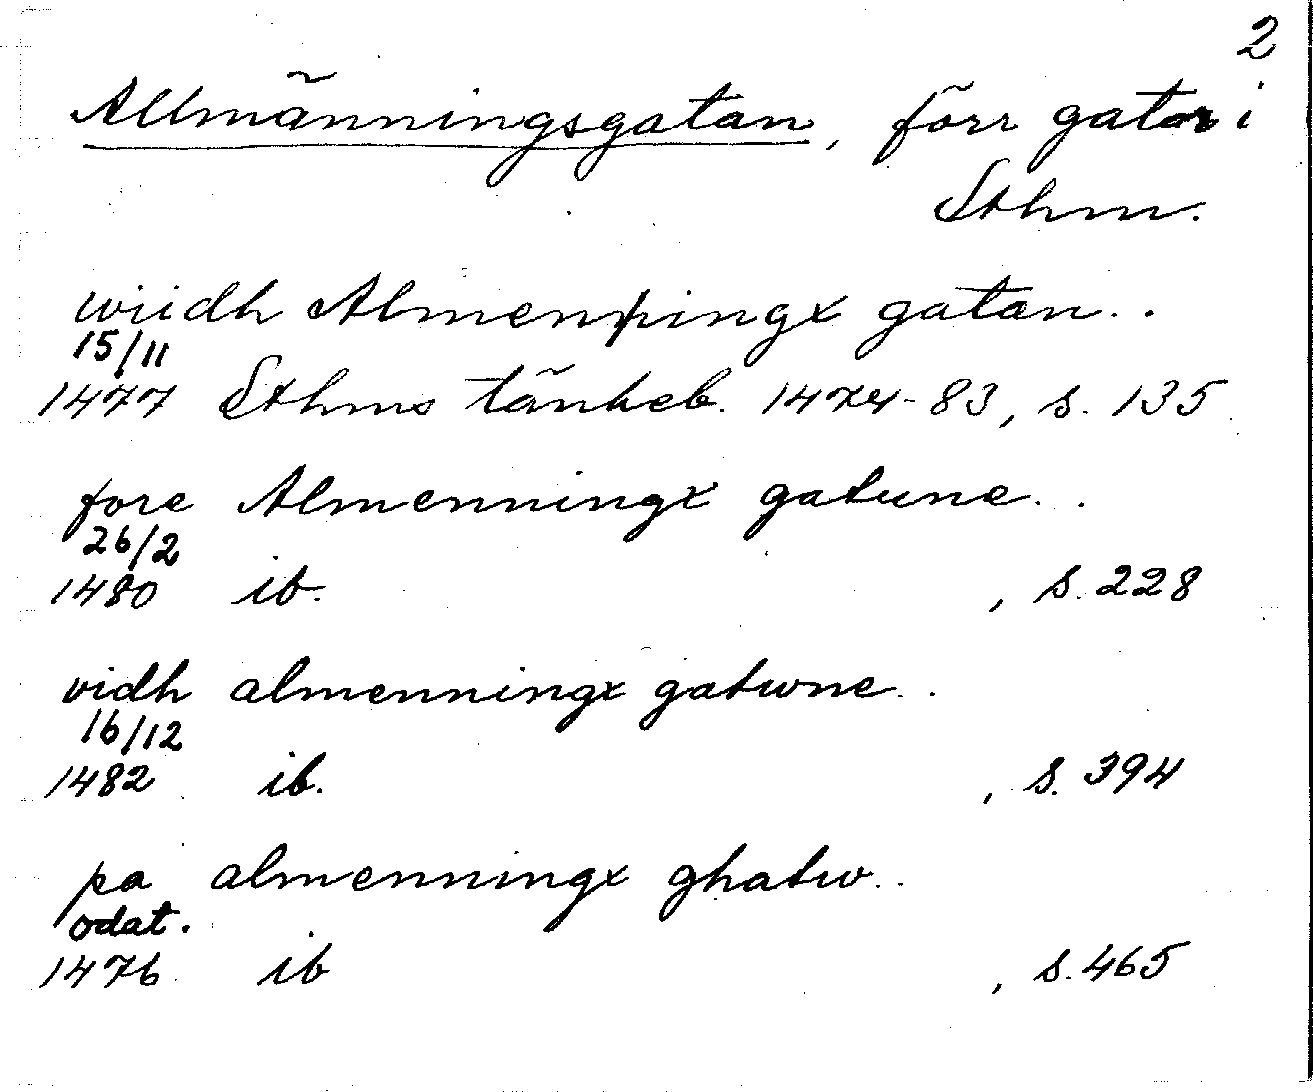 2
Allmänningsgatan, förr gator i
Sthm.
wiidh Almenningx gatan..
15/11
1477 Sthms tänkeb. 1474-83, s. 135
fore Almenningx gatune..
26/2
1480 ib. , s. 228
vidh almenningx gatwne..
16/12
1482 ib. , s. 394
pa almenningx ghatw..
odat.
1476 ib , s. 465